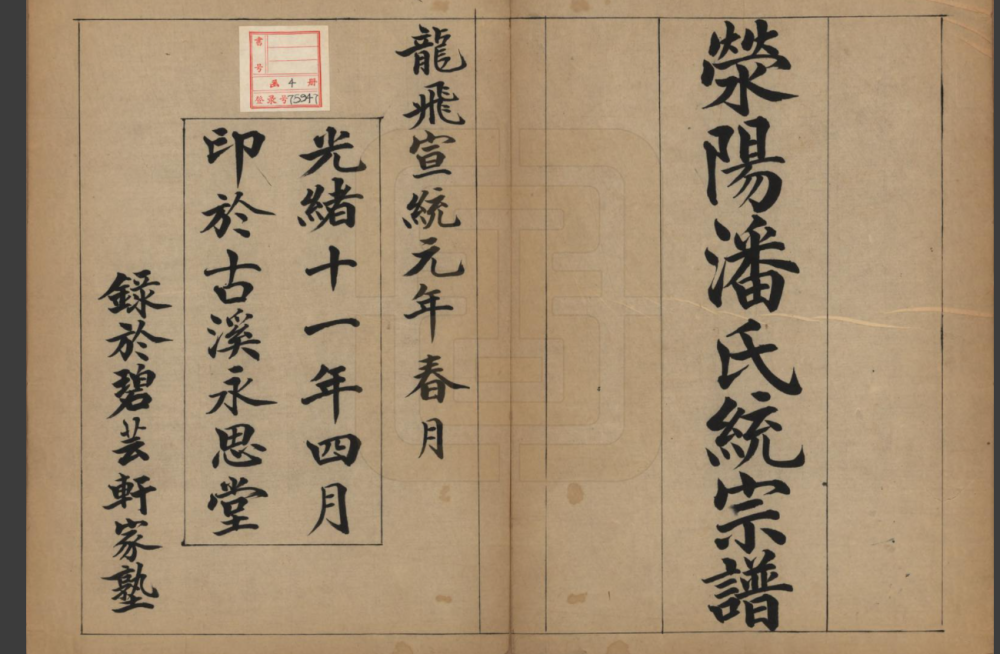 滎陽潘氏統宗譜
龍飛宣統元年春月
光緒十一年四月
印於古溪永思堂
錄於碧芸軒家塾
書号
函 4 册
登录号 75947